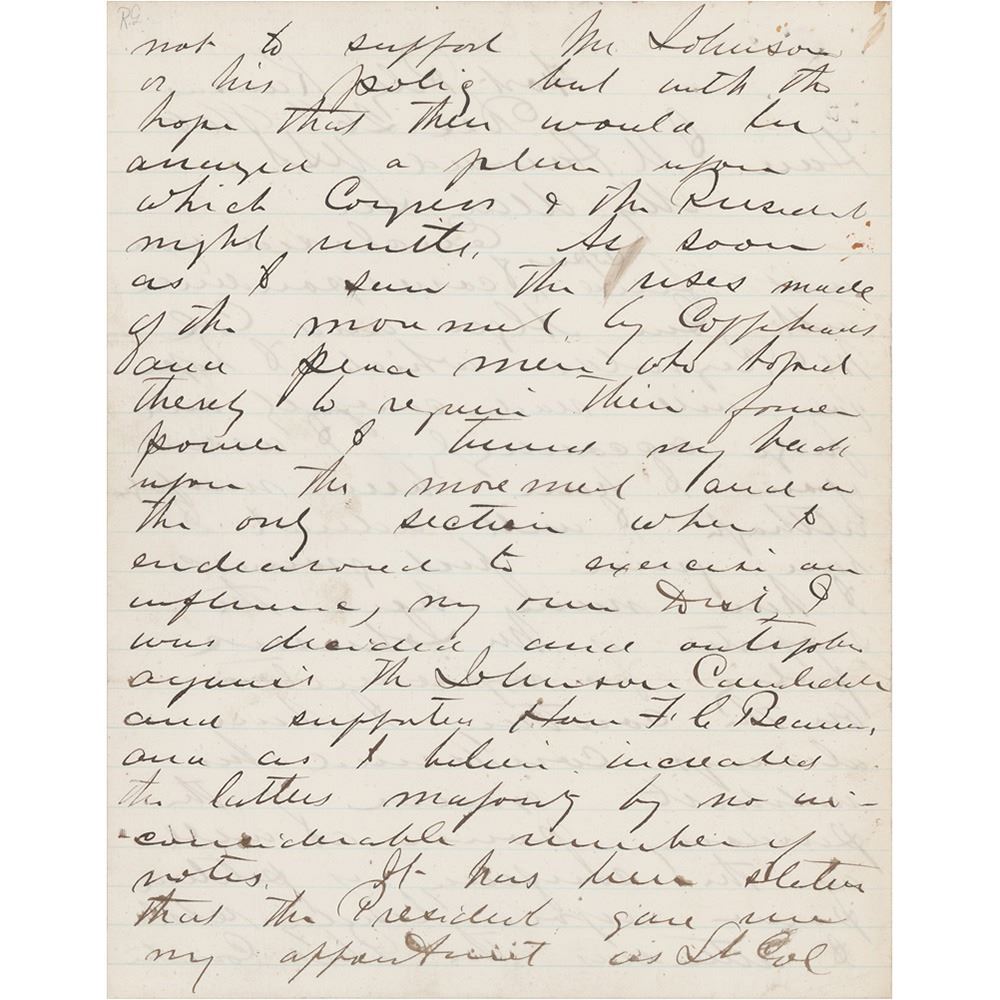 R.G.
not to support Mr Johnson
or his policy but with the
hope that there would be
arranged a plan upon
which Congress & the President
might unite. As soon
as I seen the uses made
of the movement by Copperheads
and peace men who hoped
thereby to regain their former
power I turned my back
upon the movement and in
the only section where I
endeavored to exercise an
influence, my own Dist, I
was decided and outspoken
against the Johnson Candidate
and supported Hon F. C. Beaman,
and as I believe increased
the latters majority by no in-
considerable number of
votes. It has been stated
that the President gave me
my appointment as Lt Col